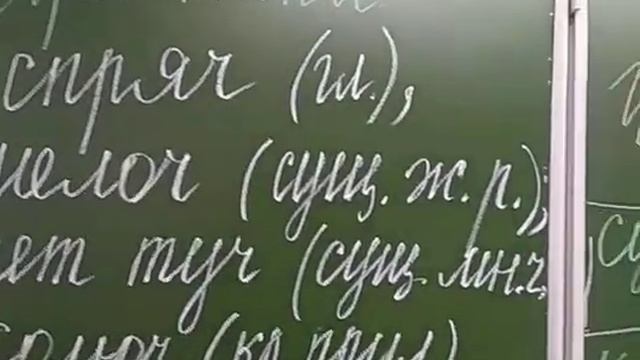 спряч (гл.),
мелоч (сущ. ж. р.),
нет туч (сущ. мн.ч.
(кр. прил.)